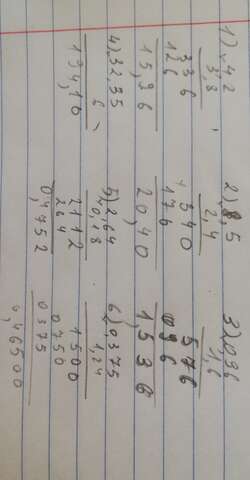 1) 4,2 2) 8,5 3) 0,96
3,8 2,4 1,6
336 340 576
126 170 096
15,96 20,40 1,536
4) 32,35 5) 2,64 6) 0,375
6 0,18 1,24
194,10 2112 1500
264 0750
0,4752 0375
0,46500